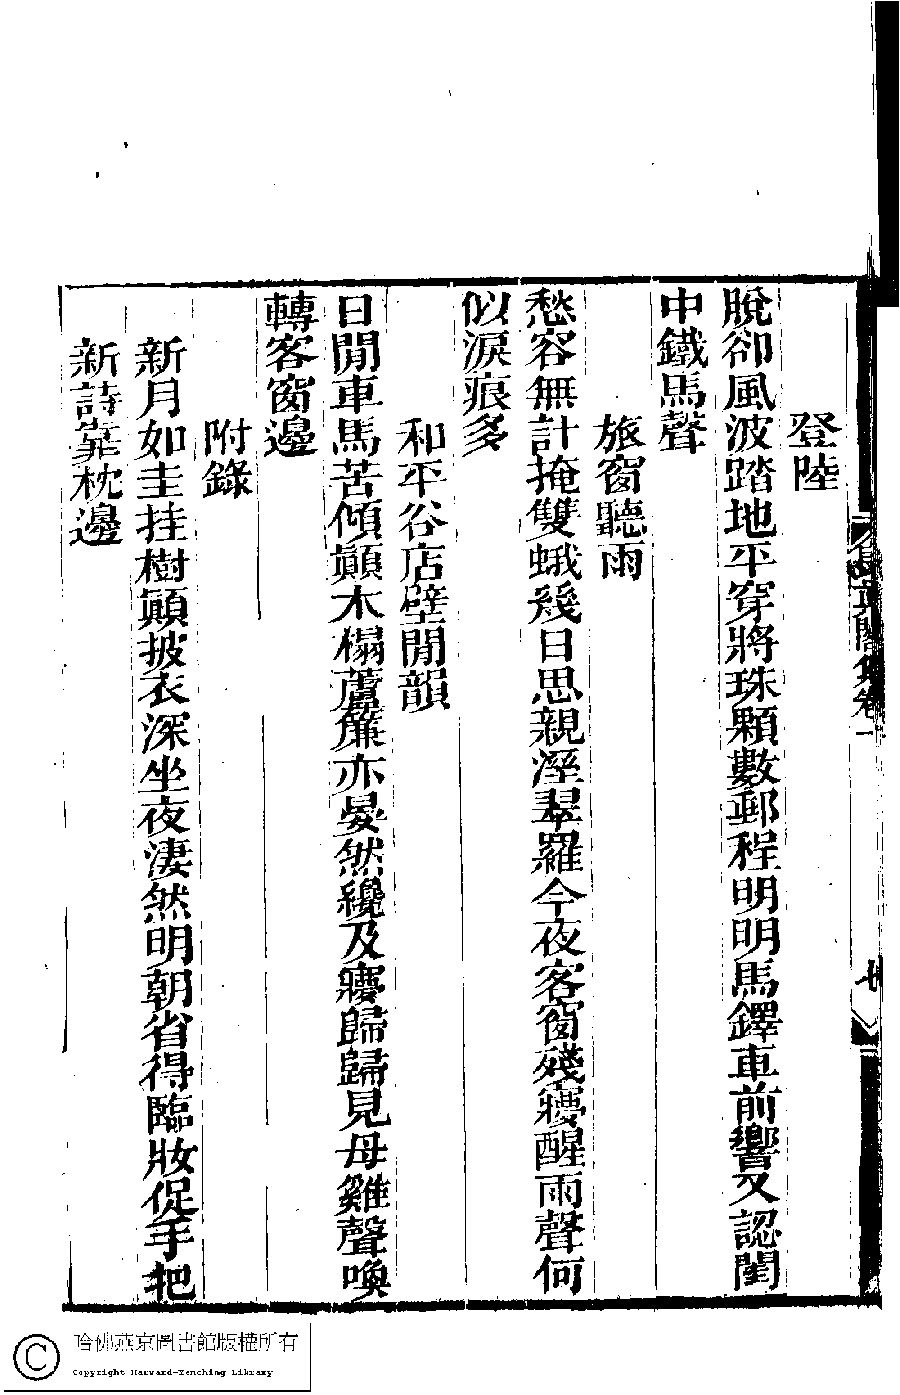 登陸
脫卻風波踏地平穿將珠顆數郵程明明馬鐸車前響又認閨
中鐵馬聲
旅窗聽雨
愁容無計掩雙蛾幾日思親溼翠羅今夜客窗殘寱醒雨聲何
似淚痕多
和平谷店壁閒韻
日閒車馬苦傾顚木榻蘆簾亦晏然纔及寱歸歸見母雞聲喚
轉客窗邊
附錄
新月如圭挂樹顚披衣深坐夜淒然明朝省得臨妝促手把
新詩靠枕邊
哈佛燕京圖書館版權所有
Copyright Harvard-Yenching Library